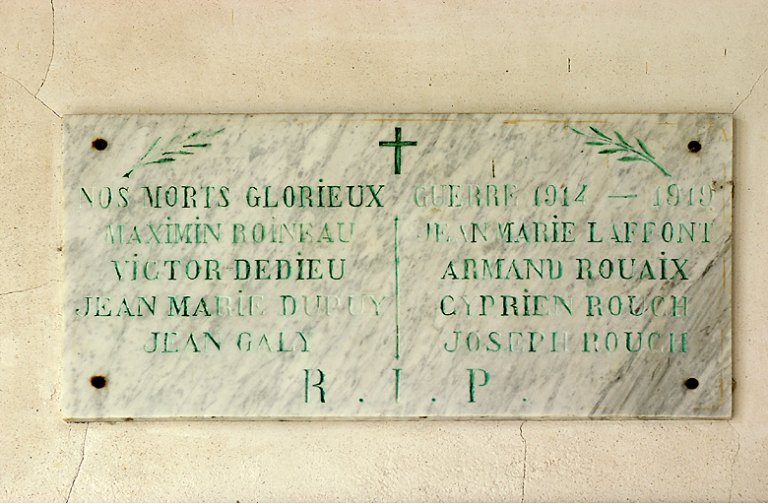 NOS MORTS GLORIEUX GUERRE 1914 — 1919
MAXIMIN ROINEAU
VICTOR DEDIEU
JEAN MARIE DUPUY
JEAN GALY
JEAN MARIE LAFFONT
ARMAND ROUAIX
CYPRIEN ROUCH
JOSEPH ROUCH
R . I . P .